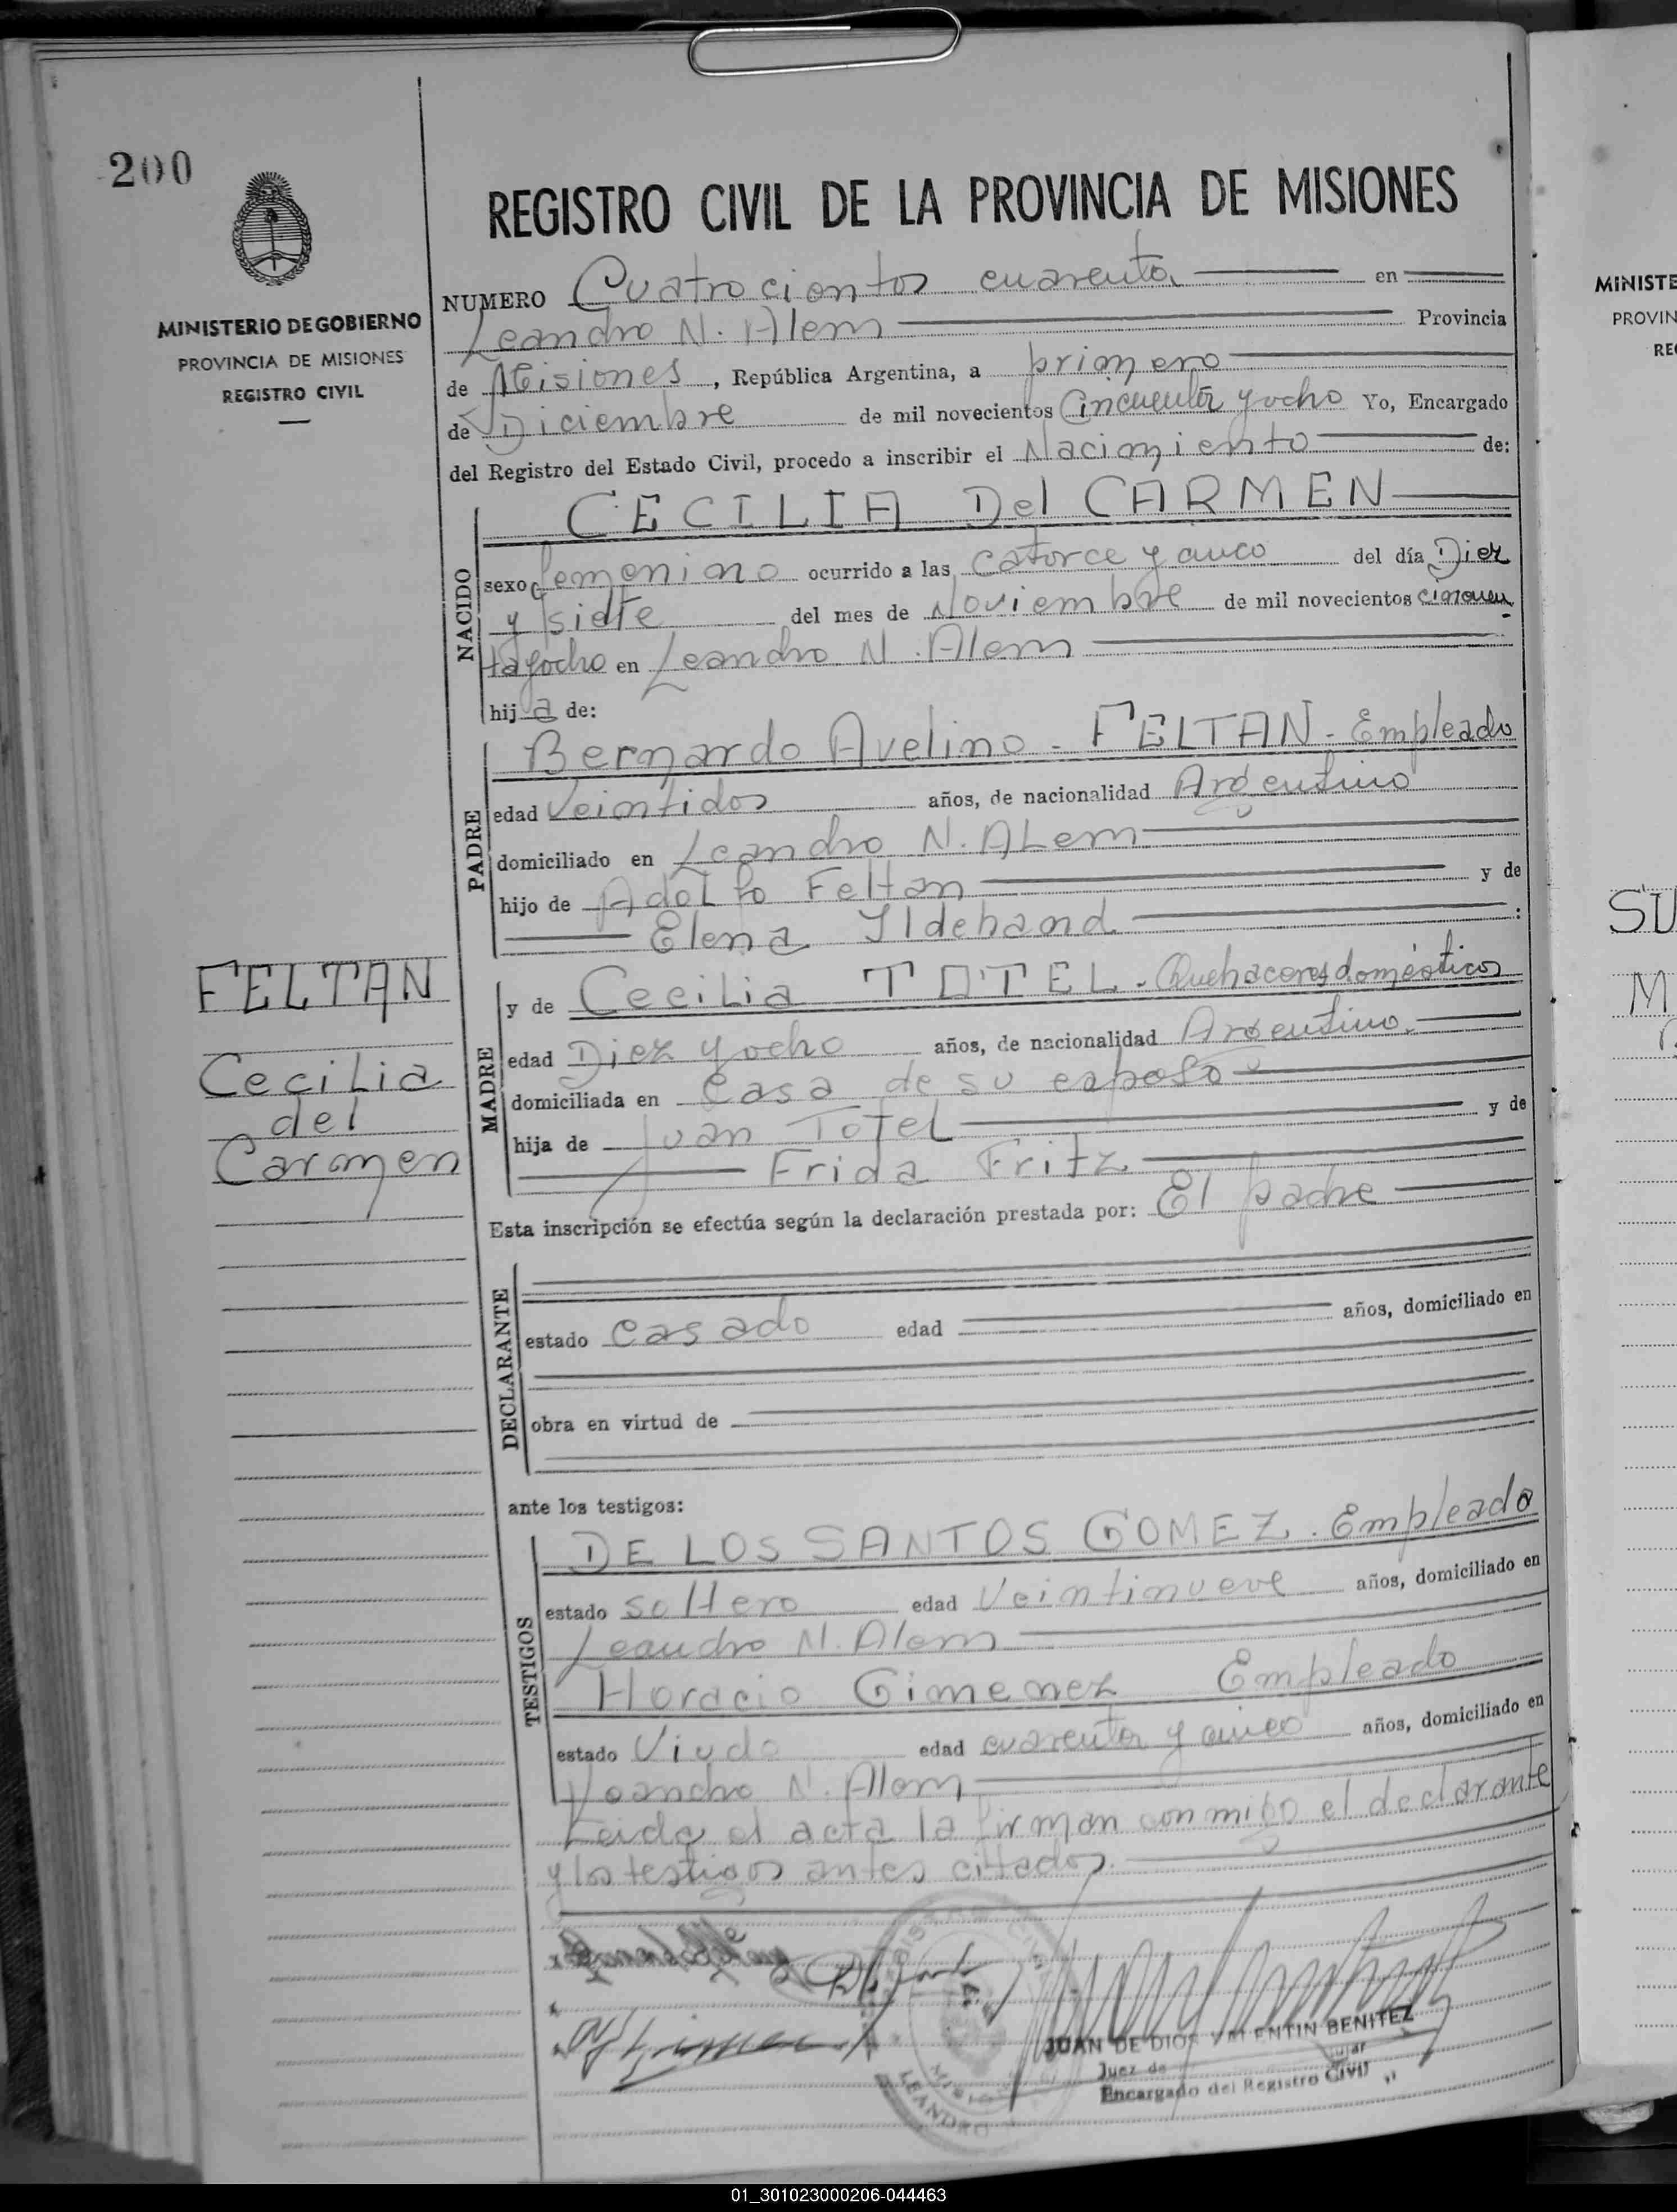 200
MINISTERIO DE GOBIERNO
PROVINCIA DE MISIONES
REGISTRO CIVIL
REGISTRO CIVIL DE LA PROVINCIA DE MISIONES
NUMERO Cuatrocientos cuarenta en
Leandro N. Alem Provincia
de Misiones, República Argentina, a primero
de Diciembre de mil novecientos cincuenta y ocho Yo, Encargado
del Registro del Estado Civil, procedo a inscribir el Nacimiento de:
NACIDO
CECILIA Del CARMEN
sexo femenino ocurrido a las catorce y cinco del día Diez
y siete del mes de Noviembre de mil novecientos cincuen
ta y ocho en Leandro N. Alem
hija de:
PADRE
Bernardo Avelino - FELTAN - Empleado
edad Veintidos años, de nacionalidad Argentino
domiciliado en Leandro N. ALem
hijo de Adolfo Feltan y de
Elena Ildeband :
MADRE
y de Cecilia TOTEL - Quehaceres domésticos
edad Diez y ocho años, de nacionalidad Argentino
domiciliada en Casa de su esposo
hija de Juan Totel y de
Frida Fritz
FELTAN
Cecilia
del
Carmen
Esta inscripción se efectúa según la declaración prestada por: El padre
DECLARANTE
estado Casado edad años, domiciliado en
obra en virtud de
ante los testigos:
TESTIGOS
DE LOS SANTOS GOMEZ. Empleado
estado soltero edad Veintinueve años, domiciliado en
Leandro N. Alem
Horacio Gimenez Empleado
estado Viudo edad cuarenta y cinco años, domiciliado en
Leandro N. Alem
Leida el acta la firman conmigo el declarante
y los testigos antes citados.
JUAN DE DIOS VALENTIN BENITEZ
Juez de
Encargado del Registro Civil
LEANDRO
MINISTE
PROVIN
RE
SU
M
01_301023000206-044463